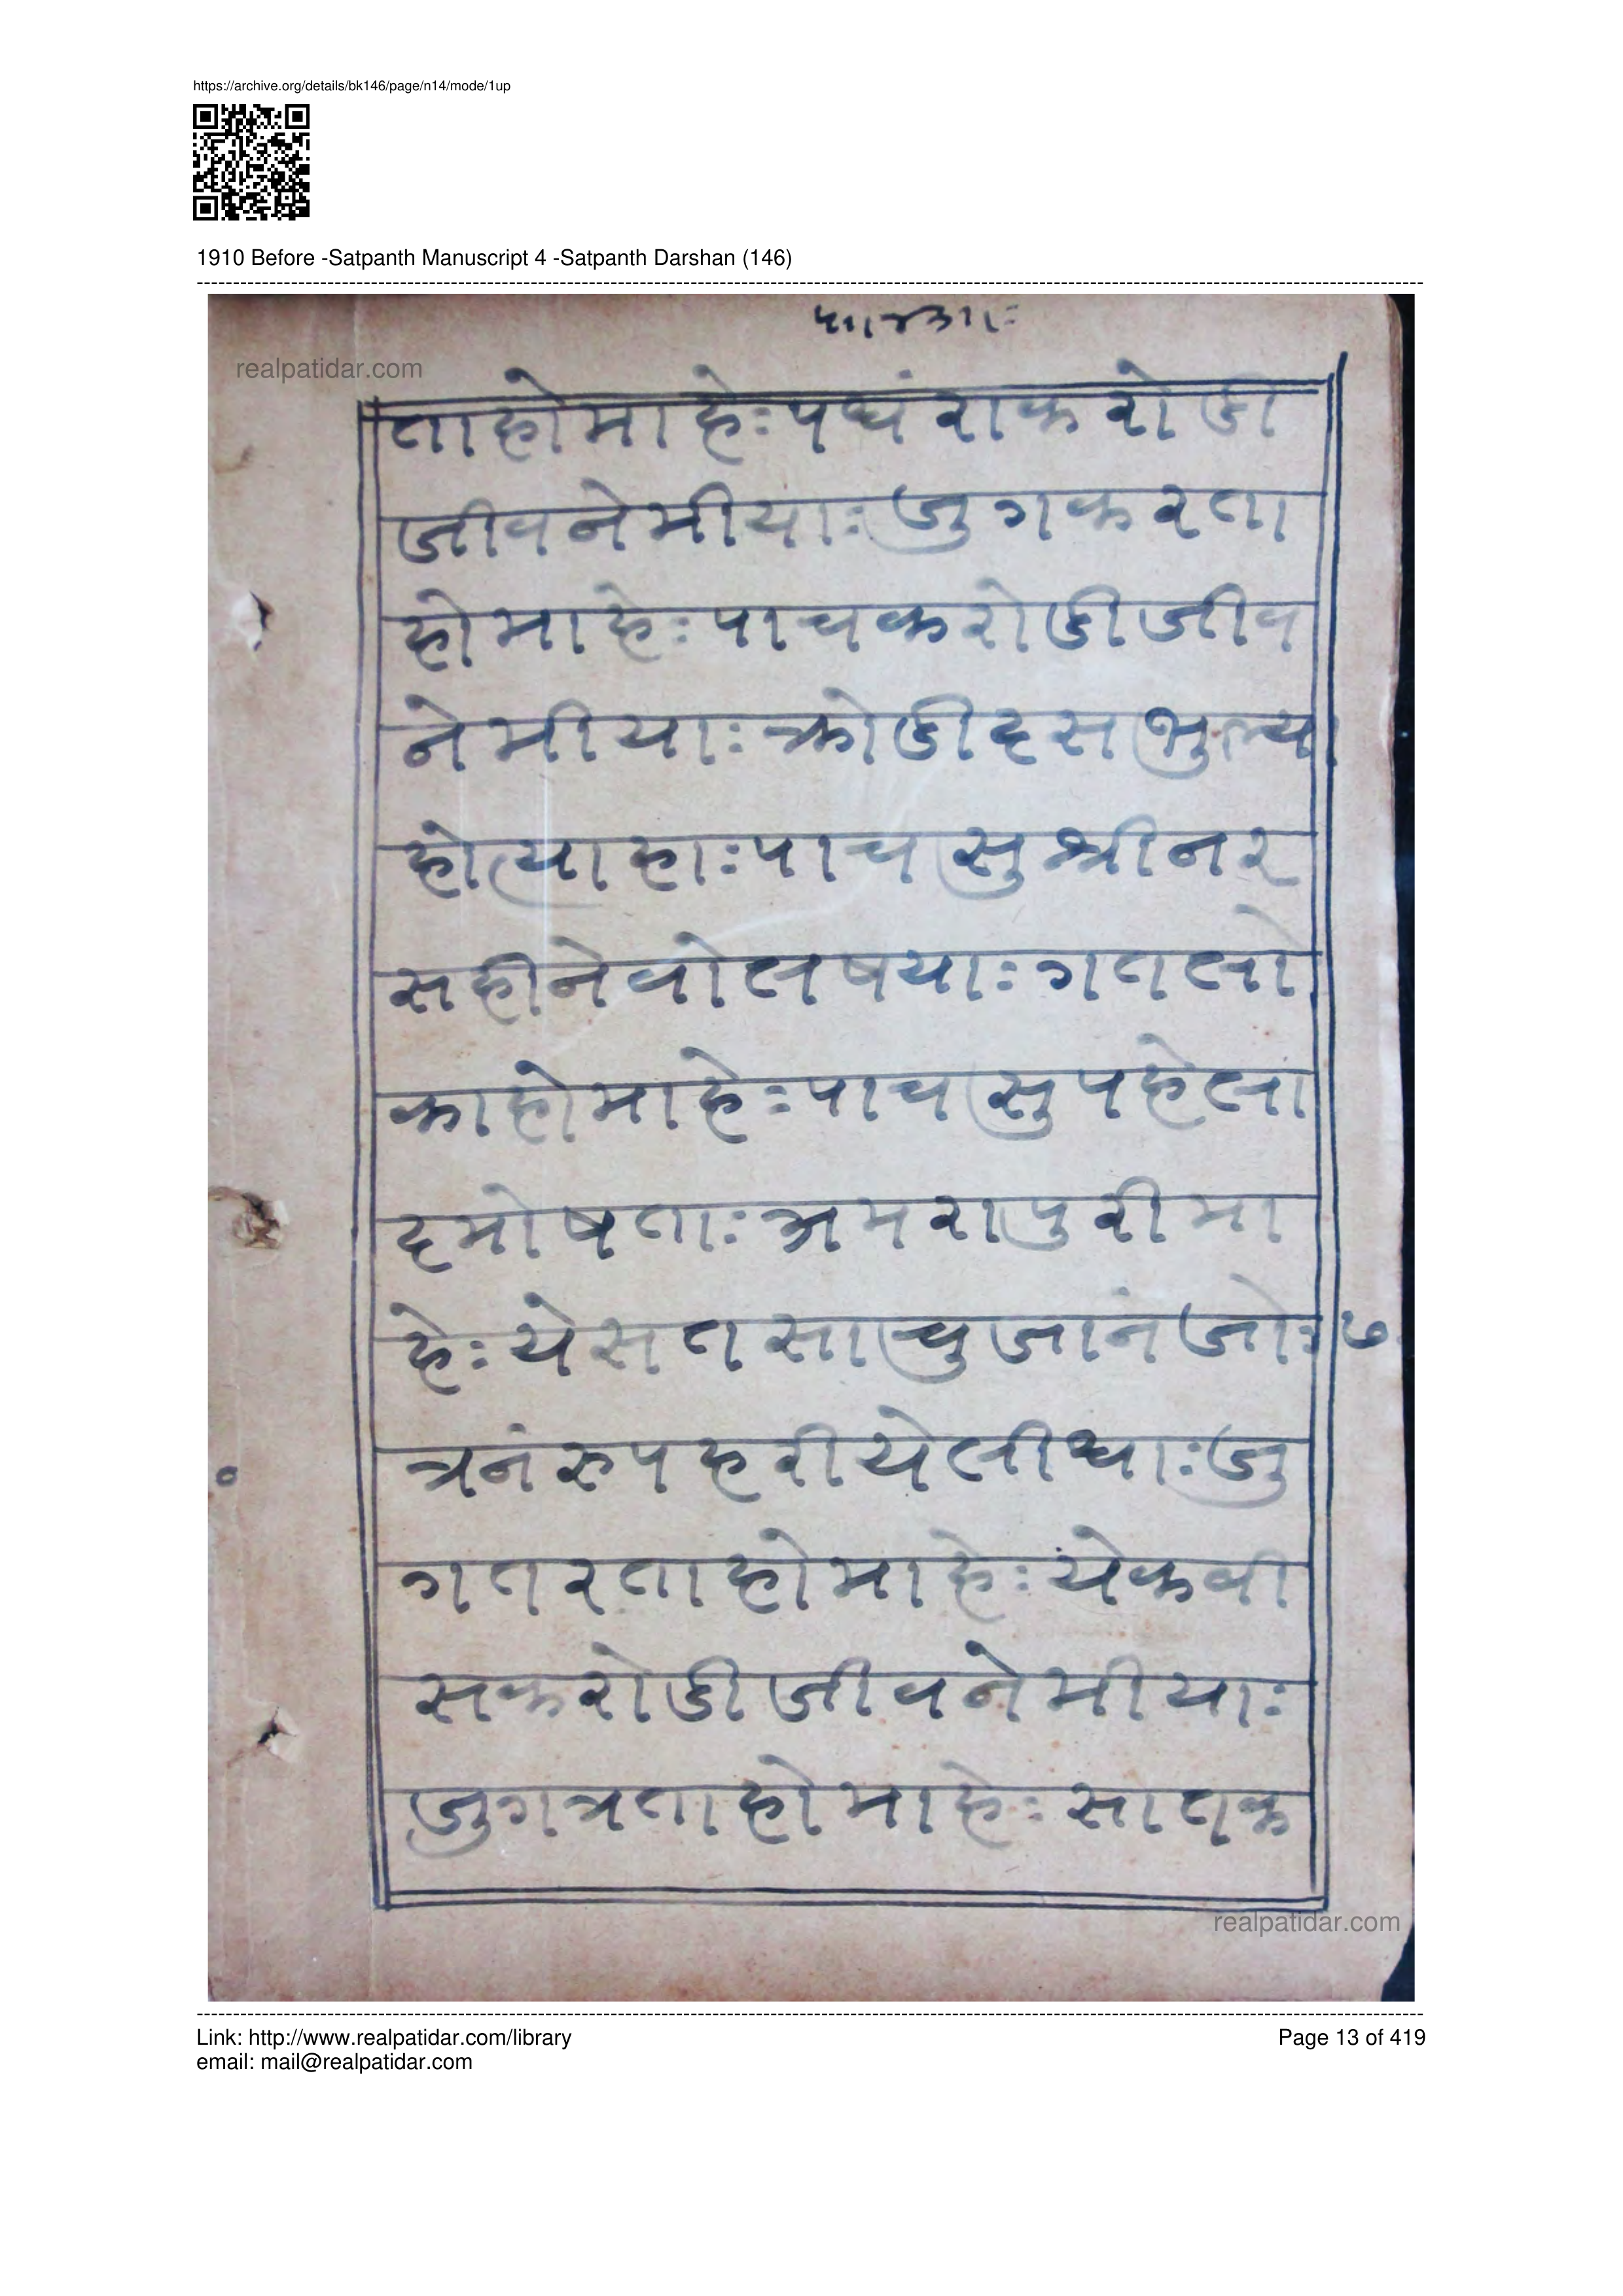 https://archive.org/details/bk146/page/n14/mode/1up
1910 Before -Satpanth Manuscript 4 -Satpanth Darshan (146)
realpatidar.com
ताहोमाहेःपधंराकरोडी
जीवनेमीयाःजुगकरता
होमाहेःपाचकरोडीजीव
नेमीयाःक्रोडीदसभुल्या
होत्याहाःपाचसुश्रीनर
सहीनेवोलषयाःगतलो
काहोमाहेःपाचसुपहेला
दमोषताःअमरापुरीमा
हेःयेसतसाचुजानंजोः७
त्रनंरुपहरीयेलीधाःजु
गतरताहोमाहेःयेकवी
सकरोडीजीवनेमीयाः
जुगत्रताहोमाहेःसातक
realpatidar.com
Link: http://www.realpatidar.com/library
Page 13 of 419
email: mail@realpatidar.com